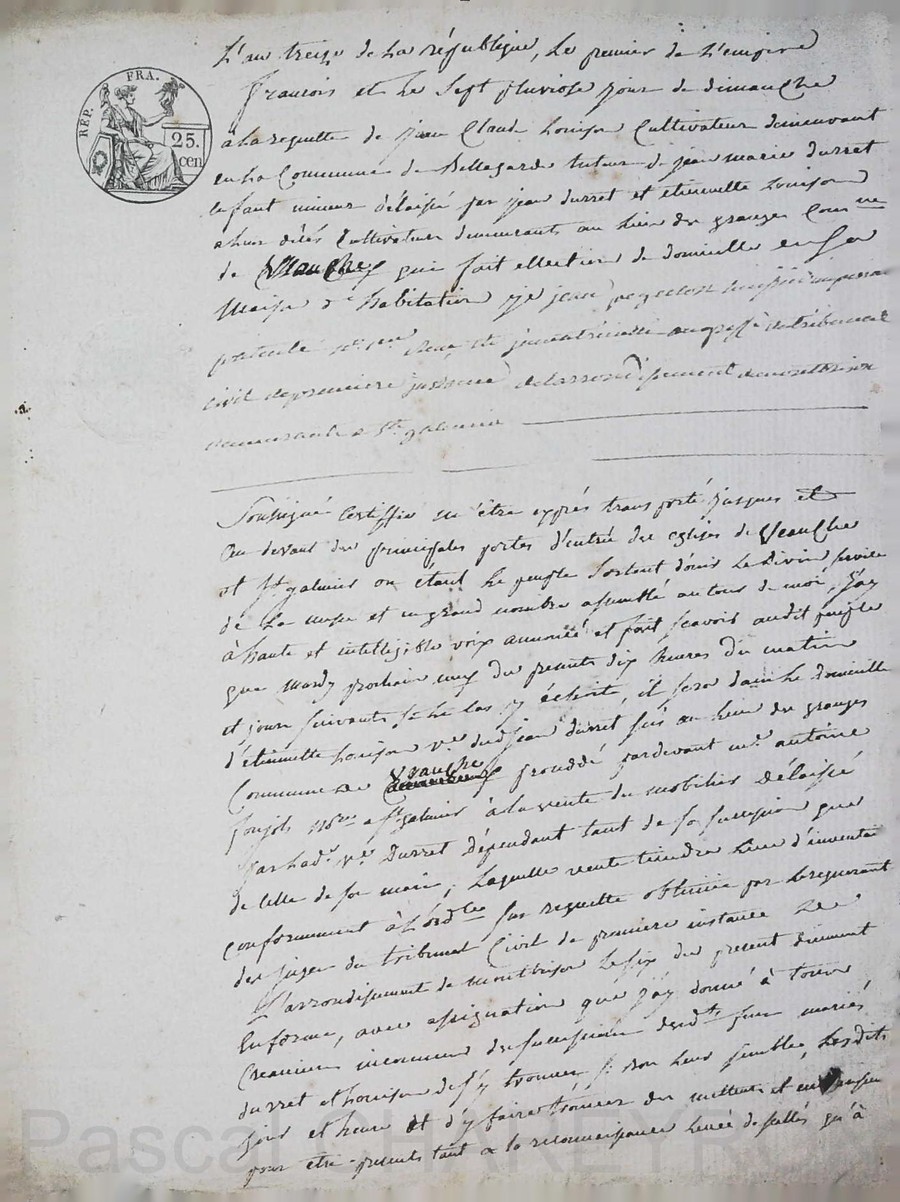 REP. FRA.
25.
cen
L'an treize de la république, Le premier de L'empire
francois et Le Sept pluviose jour de dimanche
a la requette de jean Claude Louison Cultivateur demeurant
en La Commune de Bellegarde tuteur de jean marie durret
enfant mineur délaissé par jean durret et étiennette Louison
a leurs décés Cultivateurs demeurants au Lieu des granges Com ne
de Veauche qui fait ellection de domicille en Sa
Maison d'habitation, je jean
patenté
civil de premiere instance de l'arrondissement de montbrison
demeurant a St galmier
Soussigné Certiffie m'être exprés transporté jusques et
au devant des principales portes d'entrée des eglises de Veauche
et St galmier ou étant Le peuple Sortant d'ouir Le Divin Service
de La messe et en grand nombre assemblé au tour de moi, j'ay
a haute et intelligible voix annoncé et fait scavoir audit peuple
que mardy prochain neuf du present dix heures du matin
et jours Suivants Sy le Cas y échoit, il sera dans Le domicille
d'étiennette Louison ve. dud. jean durret Sis au Lieu des granges
Commune de Veauche procedé pardevant me. antoine
notre a St galmier à La vente du mobilier Délaissé
par Lade. ve. Durret Dépendant tant de sa succession que
de Celle de son mari, Laquelle vente tiendra Lieu d'inventai
conformement à L'ordce Sur requette obtenue par Le requerant
des juges du tribunal Civil de premiere instance De
L'arrondissement de montbrison Le six du present Duement
En forme, avec assignation que j'ay donné à tous
Creanciers inconnus des successions desdts. feu mariés
durret et Louison de s'y trouver si bon leur semble, Lesdits
jour et heure et d'y faire trouver des metteurs et
pour etre presents tant a la reconnoissance Levée de scellés qu'à
Pascal CHAREYR